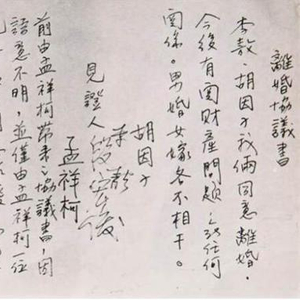 離婚協議書
李敖、胡因子我倆同意離婚，
今後有関財産問題之外任何
関係。男婚女嫁各不相干。
胡因子
李敖
見證人
孟祥柯
前由孟祥柯帶來之協議書因
語意不明，並僅由孟祥柯一位